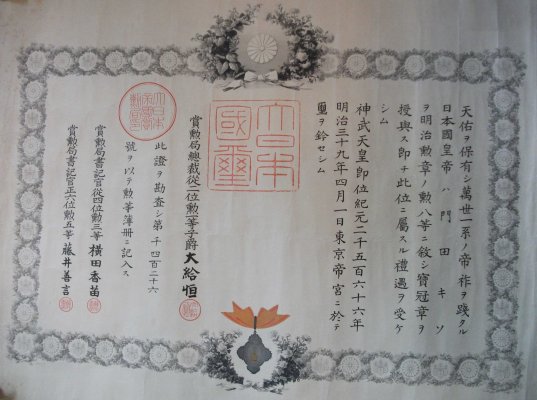 天佑ヲ保有シ萬世一系ノ帝祚ヲ踐タル
日本國皇帝ハ門田キソ
ヲ明治勲章ノ勲八等ニ敘シ寶冠章ヲ
授與ス即チ此位ニ屬スル禮遇ヲ受ケ
シム
神武天皇即位紀元二千五百六十六年
明治三十九年四月一日東京帝宮ニ於テ
璽ヲ鈐セシム
大日本國璽
賞勲局總裁從二位勲一等子爵大給恒
此證ヲ勘査シ第一千四百二十六
號ヲ以テ勲等簿冊ニ記入ス
賞勲局書記官從四位勲三等横田香苗
賞勲局書記官正六位勲五等藤井善言